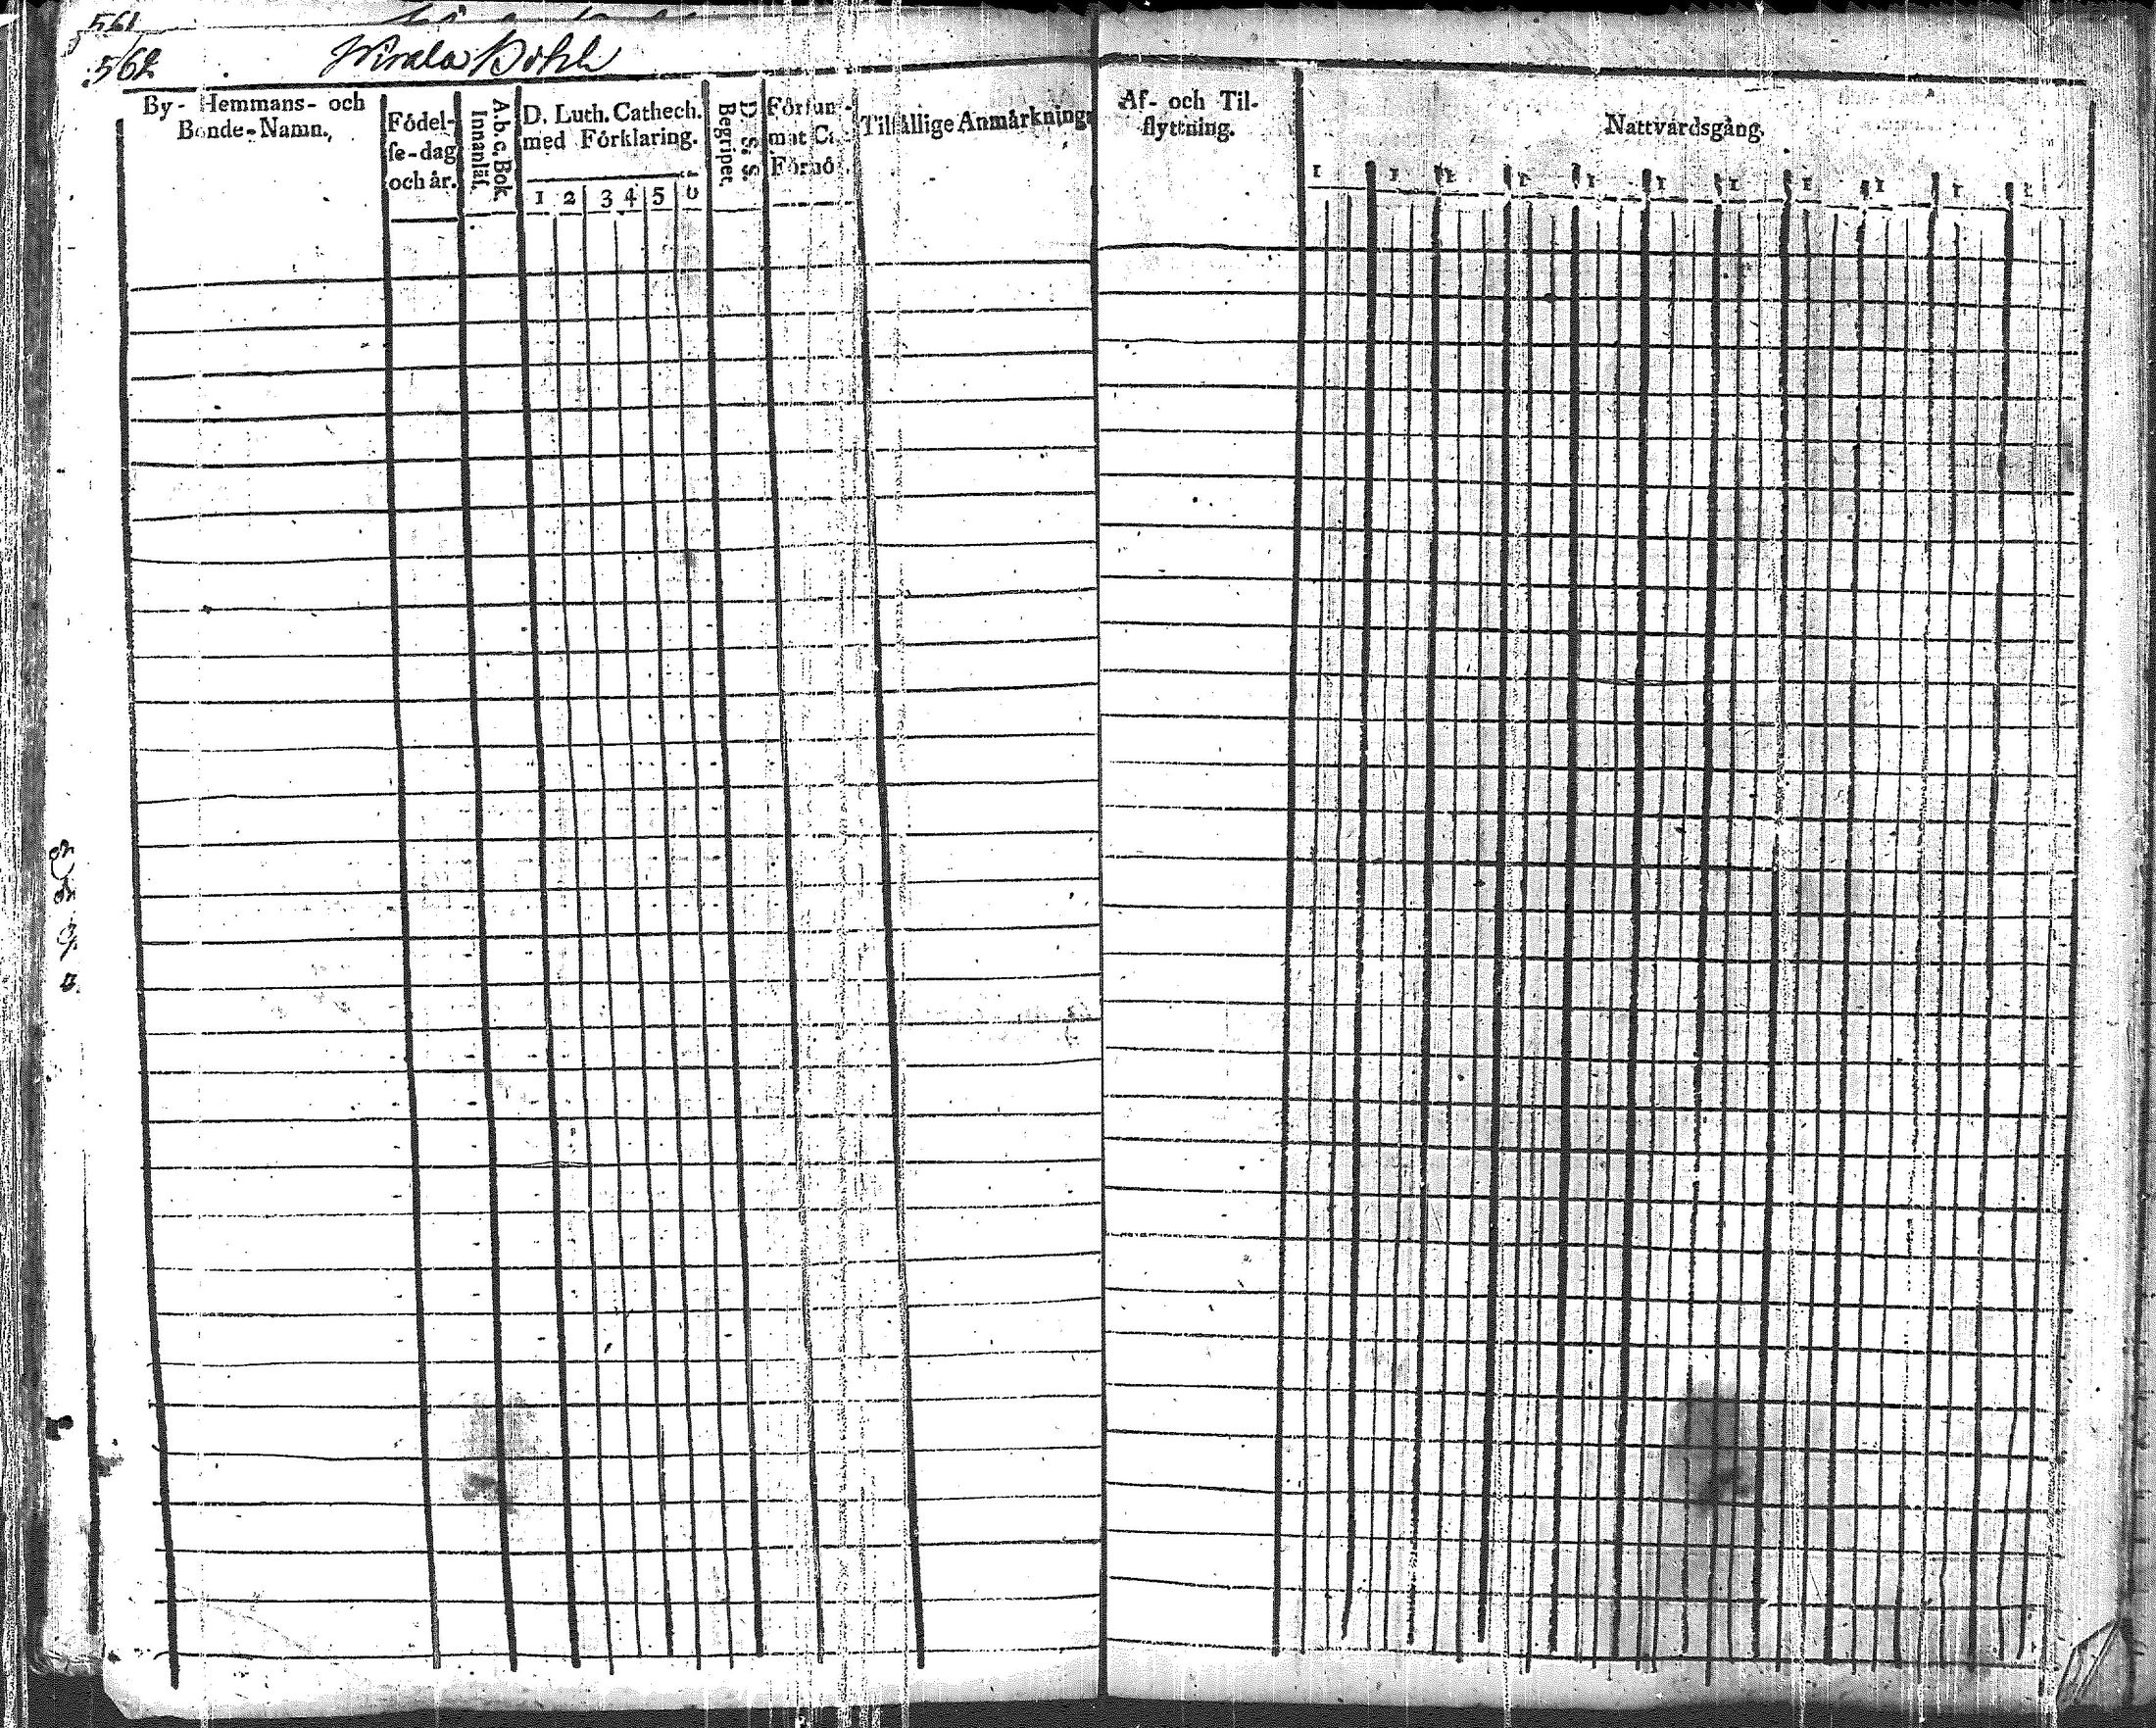 561
562
By- Hemmans- och
Bonde-Namn.
Födel-
se-dag
och år.
A.b.c.Bok.
Innanläs.
D. Luth. Cathech.
med Förklaring.
1 2 3 4 5 6
D. S. S.
Begripet.
Försum-
mat C.
Förhö
Tilfällige Anmärkning
Af- och Til-
flyttning.
Nattvardsgång.
1 1 1 1 1 1 1 1 1 1 1